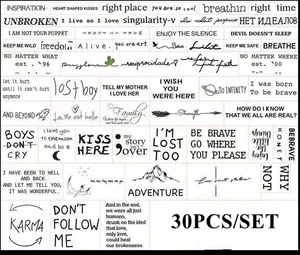 INSPIRATION
HEART SHAPED KISSES
right place
you are so cool
breathin
right time
UNBROKEN
I live so I love
singularity-v
НЕТ ИДЕАЛОВ
I AM NOT YOUR PUPPET
ENJOY THE SILENCE
DEVIL DOESN'T SLEEP
KEEP ME WILD
freedom
Alive.
you are art
KEEP ME SAFE
EST. 96
NO MATTER WHAT
est. 1996
reciprocidade
right path
NO MATTER WHAT
est. '00
let it hurt
until it can't hurt
anymore
lost boy
TELL MY MOTHER
I LOVE HER
I WISH
YOU WERE
HIGH
TO INFINITY
I was born
To be brave
AND BEYOND
La vie est belle
Family
Strength
HOW DO I KNOW
THAT WE ALL ARE REAL?
BOYS
DON'T
CRY
i love you
to the moon
and back
KISS
HERE
my
story
over
I'M
LOST
TOO
BE BRAVE
GO WHERE
YOU PLEASE
BRAVE
HONEY
WHY
NOT
I HAVE BEEN TO HELL
AND BACK.
AND LET ME TELL YOU,
IT WAS WONDERFUL.
ADVENTURE
KARMA
DON'T
FOLLOW
ME
And in the end,
we were all just
humans,
drunk on the idea
that love,
only love,
could heal
our brokenness.
30PCS/SET